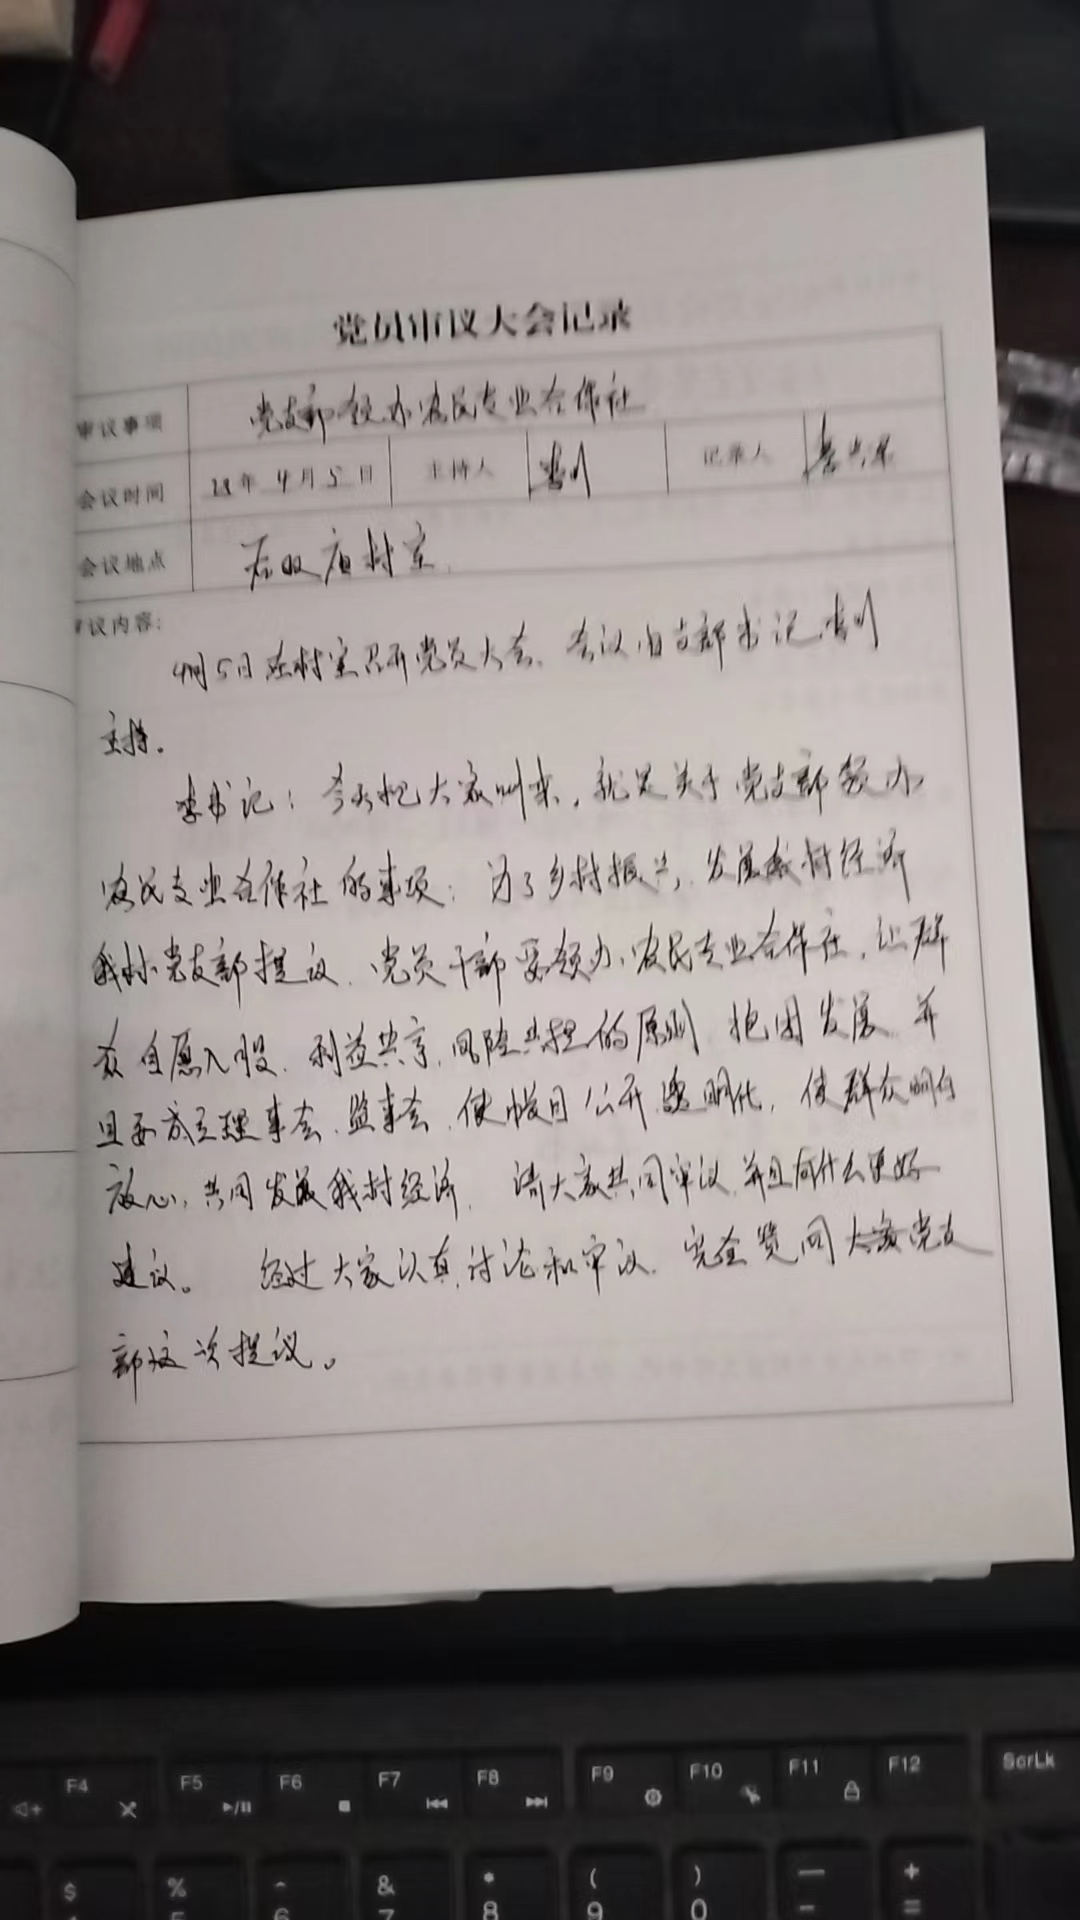 党员审议大会记录
审议事项 党支部领办农民专业合作社
会议时间 年 4月5日 主持人 李川 记录人
会议地点 村室
审议内容:
4月5日在村室召开党员大会、会议由支部书记李川
主持。
李书记:今天把大家叫来,就是关于党支部领办
农民专业合作社的事项:为了乡村振兴,发展我村经济
我村党支部提议、党员干部要领办农民专业合作社,让群
众自愿入股、利益共享、风险共担的原则 抱团发展 并
且要成立理事会、监事会、使帐目公开透明化,使群众明白
放心,共同发展我村经济. 请大家共同审议,并且有什么更好
建议。 经过大家认真讨论和审议、完全赞同 党支
部这次提议。
F4 F5 F6 F7 F8 F9 F10 F11 F12 ScrLk
$ % ^ & * ( ) — +
5 6 7 8 9 0 - =